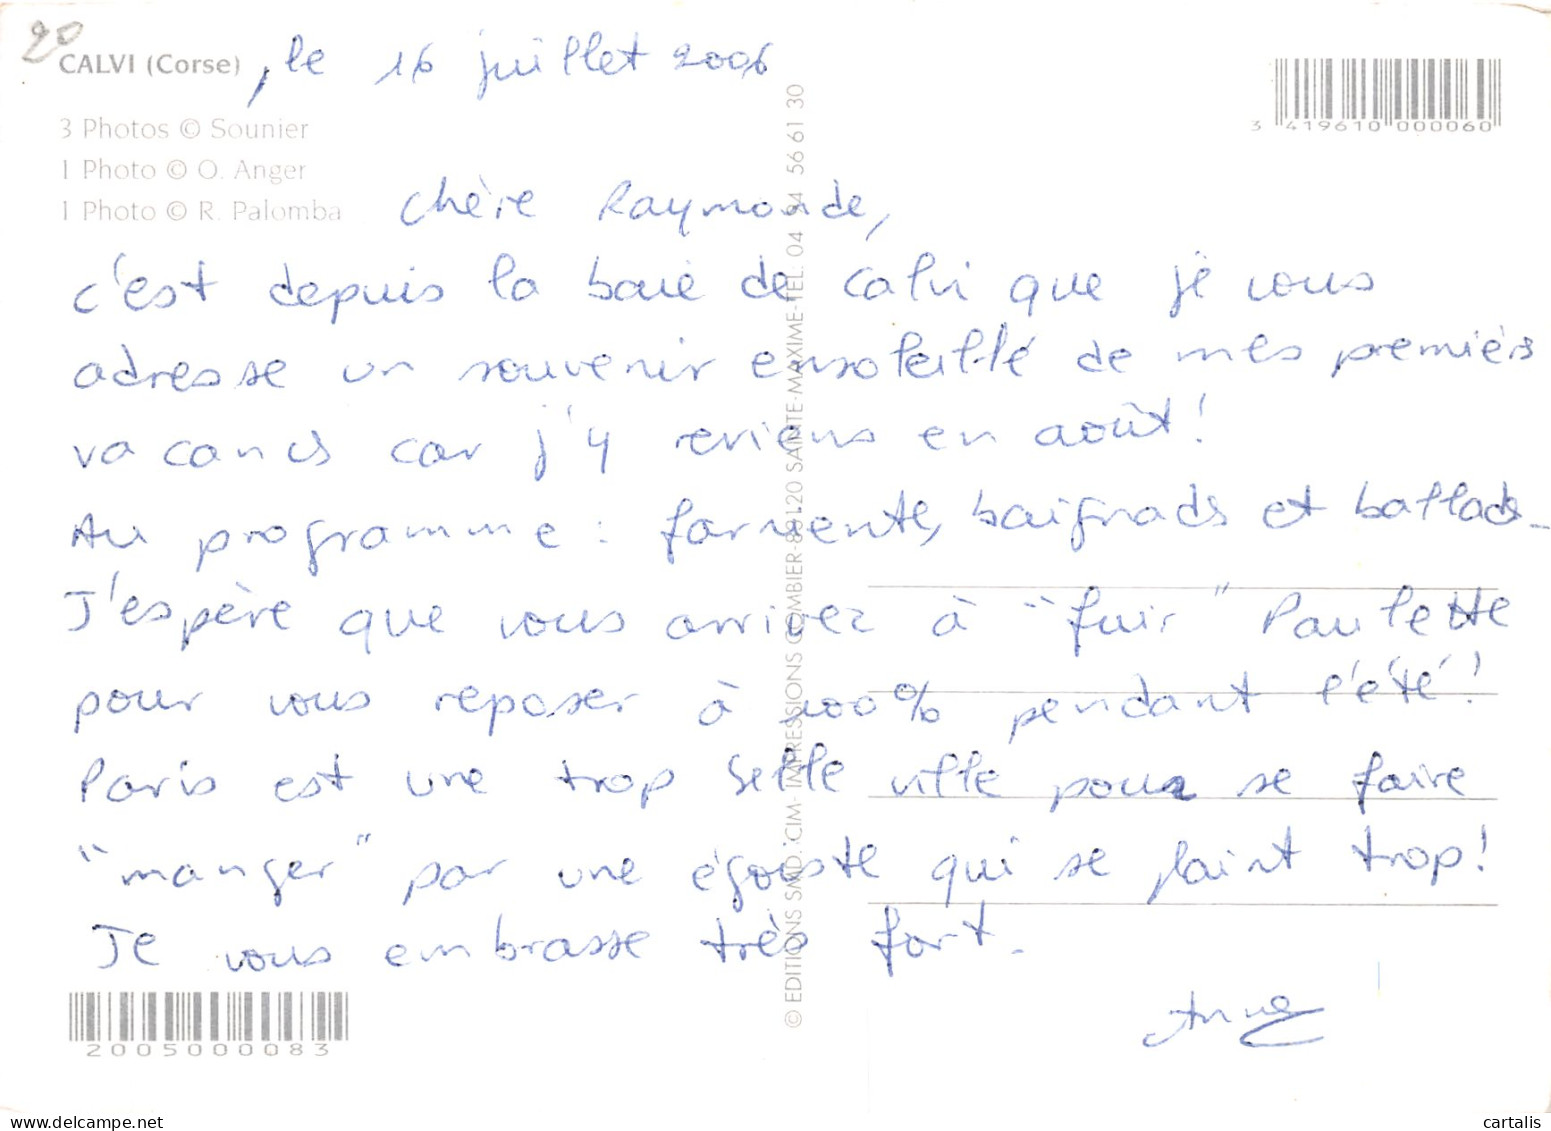 20
CALVI (Corse), le 16 juillet 2006
3 419610 000060
3 Photos © Sounier
1 Photo © O. Anger
1 Photo © R. Palomba
Chère Raymonde,
c'est depuis la baie de Calvi que je vous
adresse un souvenir ensoleillé de mes premières
vacances car j'y reviens en août !
Au programme : farniente, baignades et ballades.
J'espère que vous arrivez à "fuir" Paulette
pour vous reposer à 100% pendant l'été !
Paris est une trop belle ville pour se faire
"manger" par une égoïste qui se plaint trop !
Je vous embrasse très fort.
Anne
2005000083
© EDITIONS SMD. CIM- IMPRESSIONS COMBIER-83120 SAINTE-MAXIME-TEL. 04 94 56 61 30
www.delcampe.net
cartalis